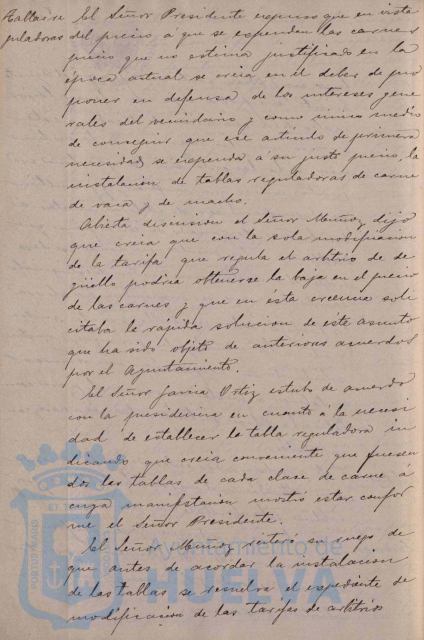 Tablas re
guladoras
El Señor Presidente expuso que en vista
del precio á que se expenden las carnes
precio que no estima justificado en la
época actual se creia en el deber de pro
poner en defensa de los intereses gene
rales del vecindario y como unico medio
de conseguir que ese articulo de primera
necesidad se expenda a su justo precio, la
instalacion de tablas reguladoras de carne
de vaca y de macho.
Abierta discusion el Señor Muñoz dijo
que creia que con la sola modificacion
de la tarifa que regula el arbitrio de de
güello podria obtenerse la baja en el precio
de las carnes y que en ésta creencia soli
citaba la rapida solucion de este asunto
que ha sido objeto de anteriores acuerdos
por el Ayuntamiento.
El Señor Garcia Ortiz estubo de acuerdo
con la presidencia en cuanto á la necesi
dad de establecer la tabla reguladora in
dicando que creia conveniente que fuesen
dos las tablas de cada clase de carne á
cuya manifstacion mostró estar confor
me el Señor Presidente.
El Señor Muñoz reiteró su ruego de
que antes de acordar la instalacion
de las tablas se resuelva el expediente de
modificacion de las tarifas de arbitrios
Ayuntamiento de
HUELVA
PORTUS MARIS
ET TE